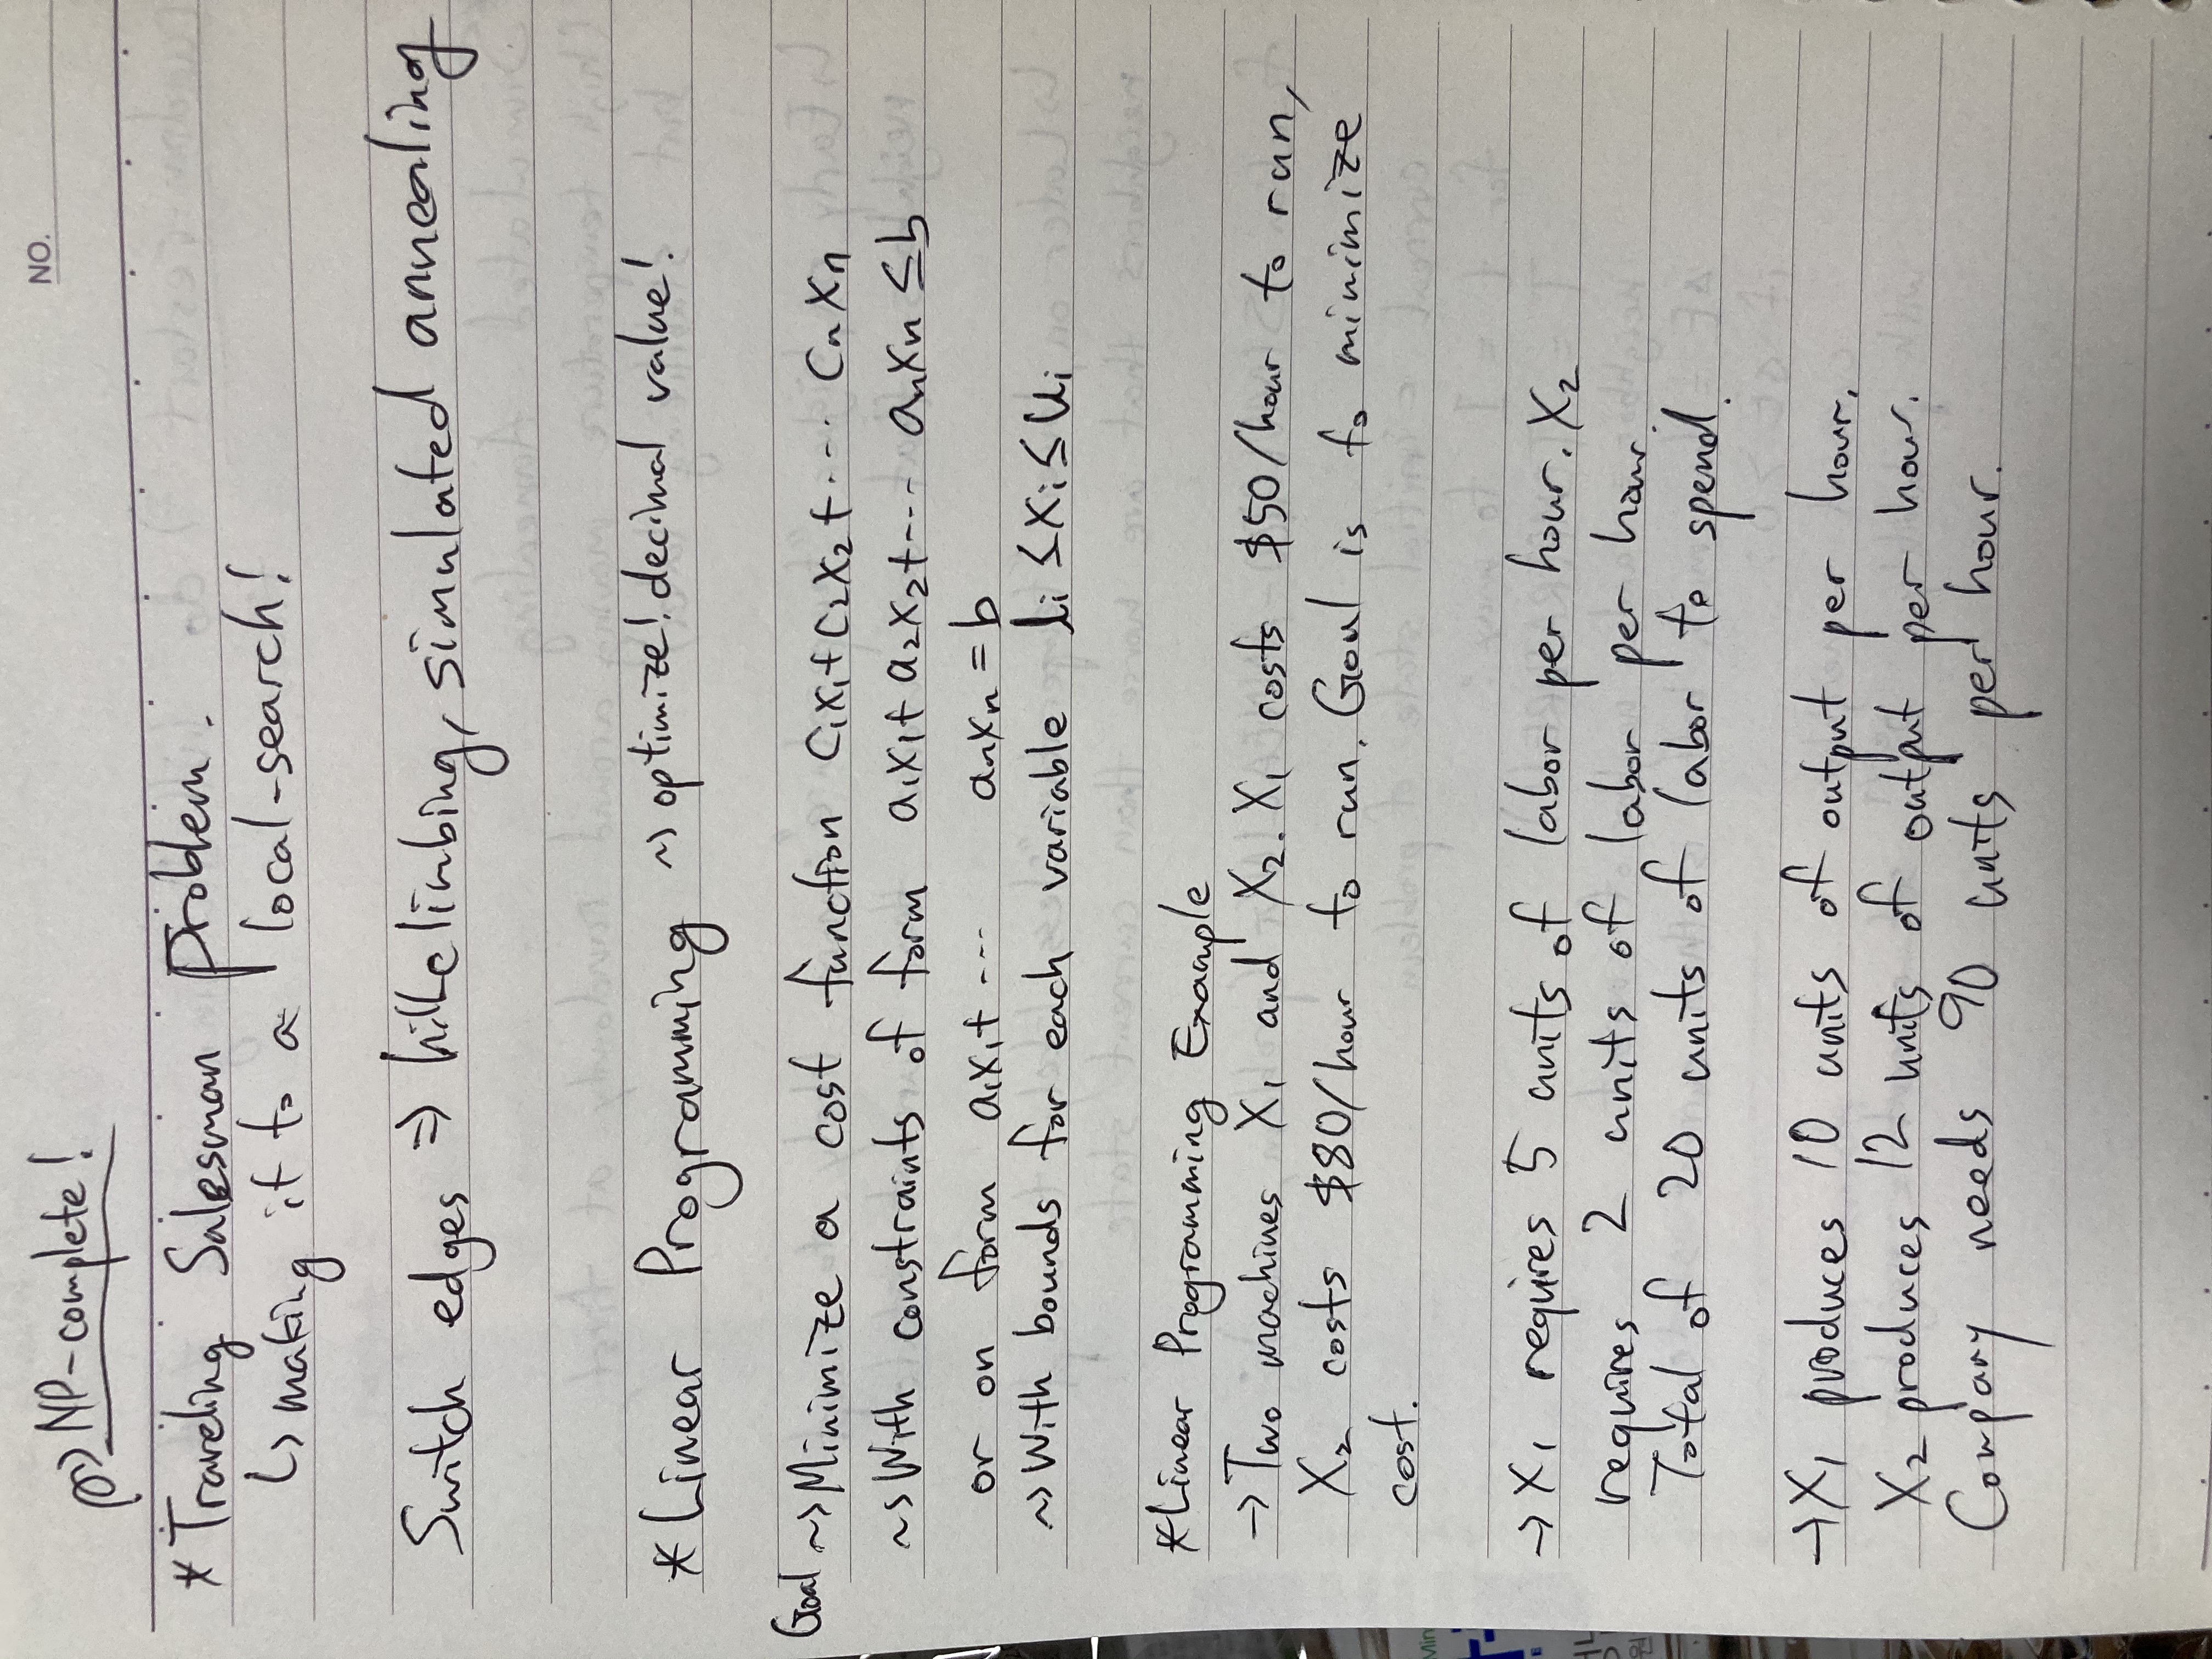 NO.
~> NP-complete!
* Traveling Salesman Problem.
↳ making it to a local-search!
Switch edges ⇒ hillclimbing, simulated annealing
* Linear Programming ~> optimize! decimal value!
Goal ~> Minimize a cost function C₁X₁ + C₂X₂ + ... CnXn
~> With constraints of form a₁x₁ + a₂x₂ + --- anxn ≤ b
or on form a₁x₁ + --- anxn = b
~> With bounds for each variable li ≤ Xi ≤ Ui
* Linear Programming Example
→ Two machines X₁ and X₂. X₁ costs $50/hour to run,
X₂ costs $80/hour to run. Goal is to minimize
cost.
→ X₁ requires 5 units of labor per hour. X₂
requires 2 units of labor per hour.
Total of 20 units of labor to spend.
→ X₁ produces 10 units of output per hour.
X₂ produces 12 units of output per hour.
Company needs 90 units per hour.